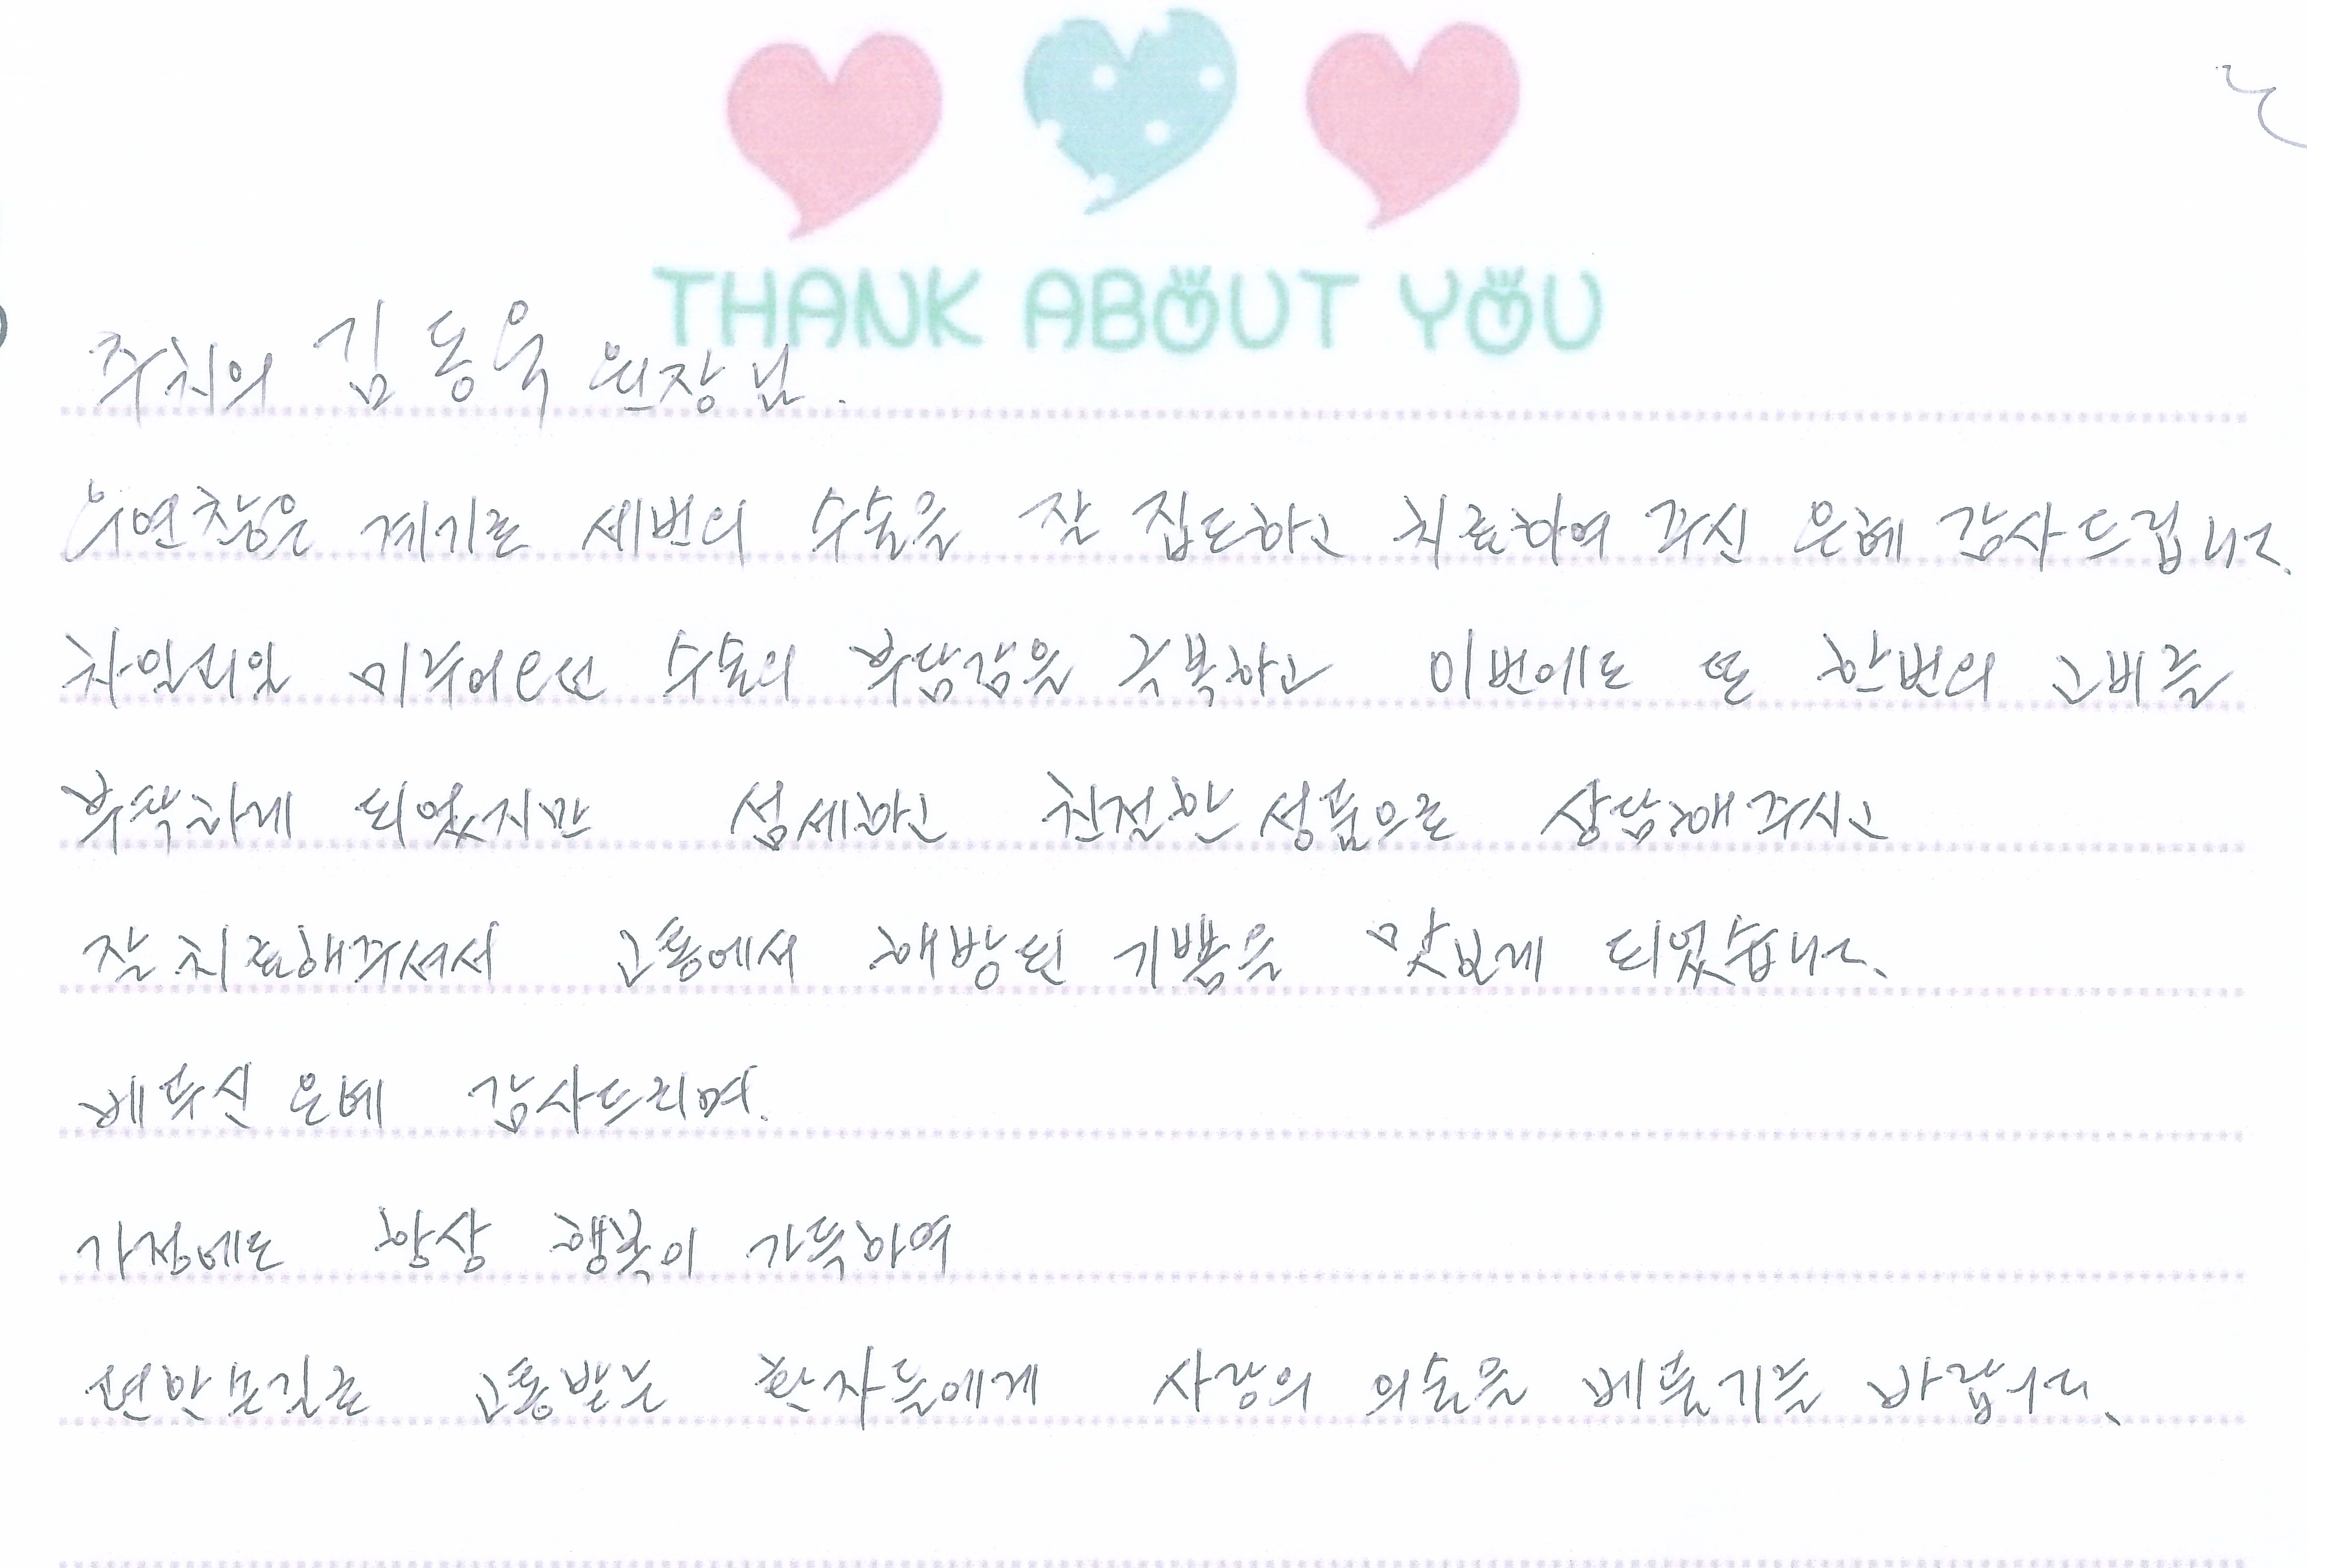 THANK ABOUT YOU
주치의 김동욱 원장님.
계기로 세번의 수술을 잘 집도하고 치료하여 주신 은혜 감사드립니다.
차일피일 미루어오던 수술의 부담감을 극복하고 이번에도 또 한번의 고비를
부탁하게 되었지만 섬세하고 친절한 성품으로 상담해주시고
잘 치료해주셔서 고통에서 해방된 기쁨을 맛보게 되었습니다.
베푸신 은혜 감사드리며.
가정에도 항상 행복이 가득하여
고통받는 환자들에게 사랑의 의술을 베풀기를 바랍니다.